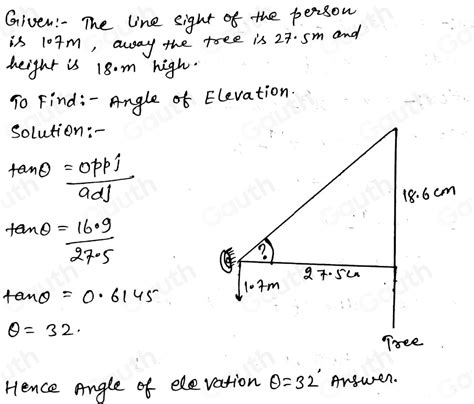 Given:- The line sight of the person
is 1.7m, away the tree is 27.5m and
height is 18.m high.
To Find:- Angle of Elevation.
Solution:-
tanθ = oppj
adj
tanθ = 16.9
27.5
tanθ = 0.6145
θ = 32.
?
18.6cm
27.5cm
1.7m
Tree
Hence Angle of elevation θ=32° Answer.
Gauth